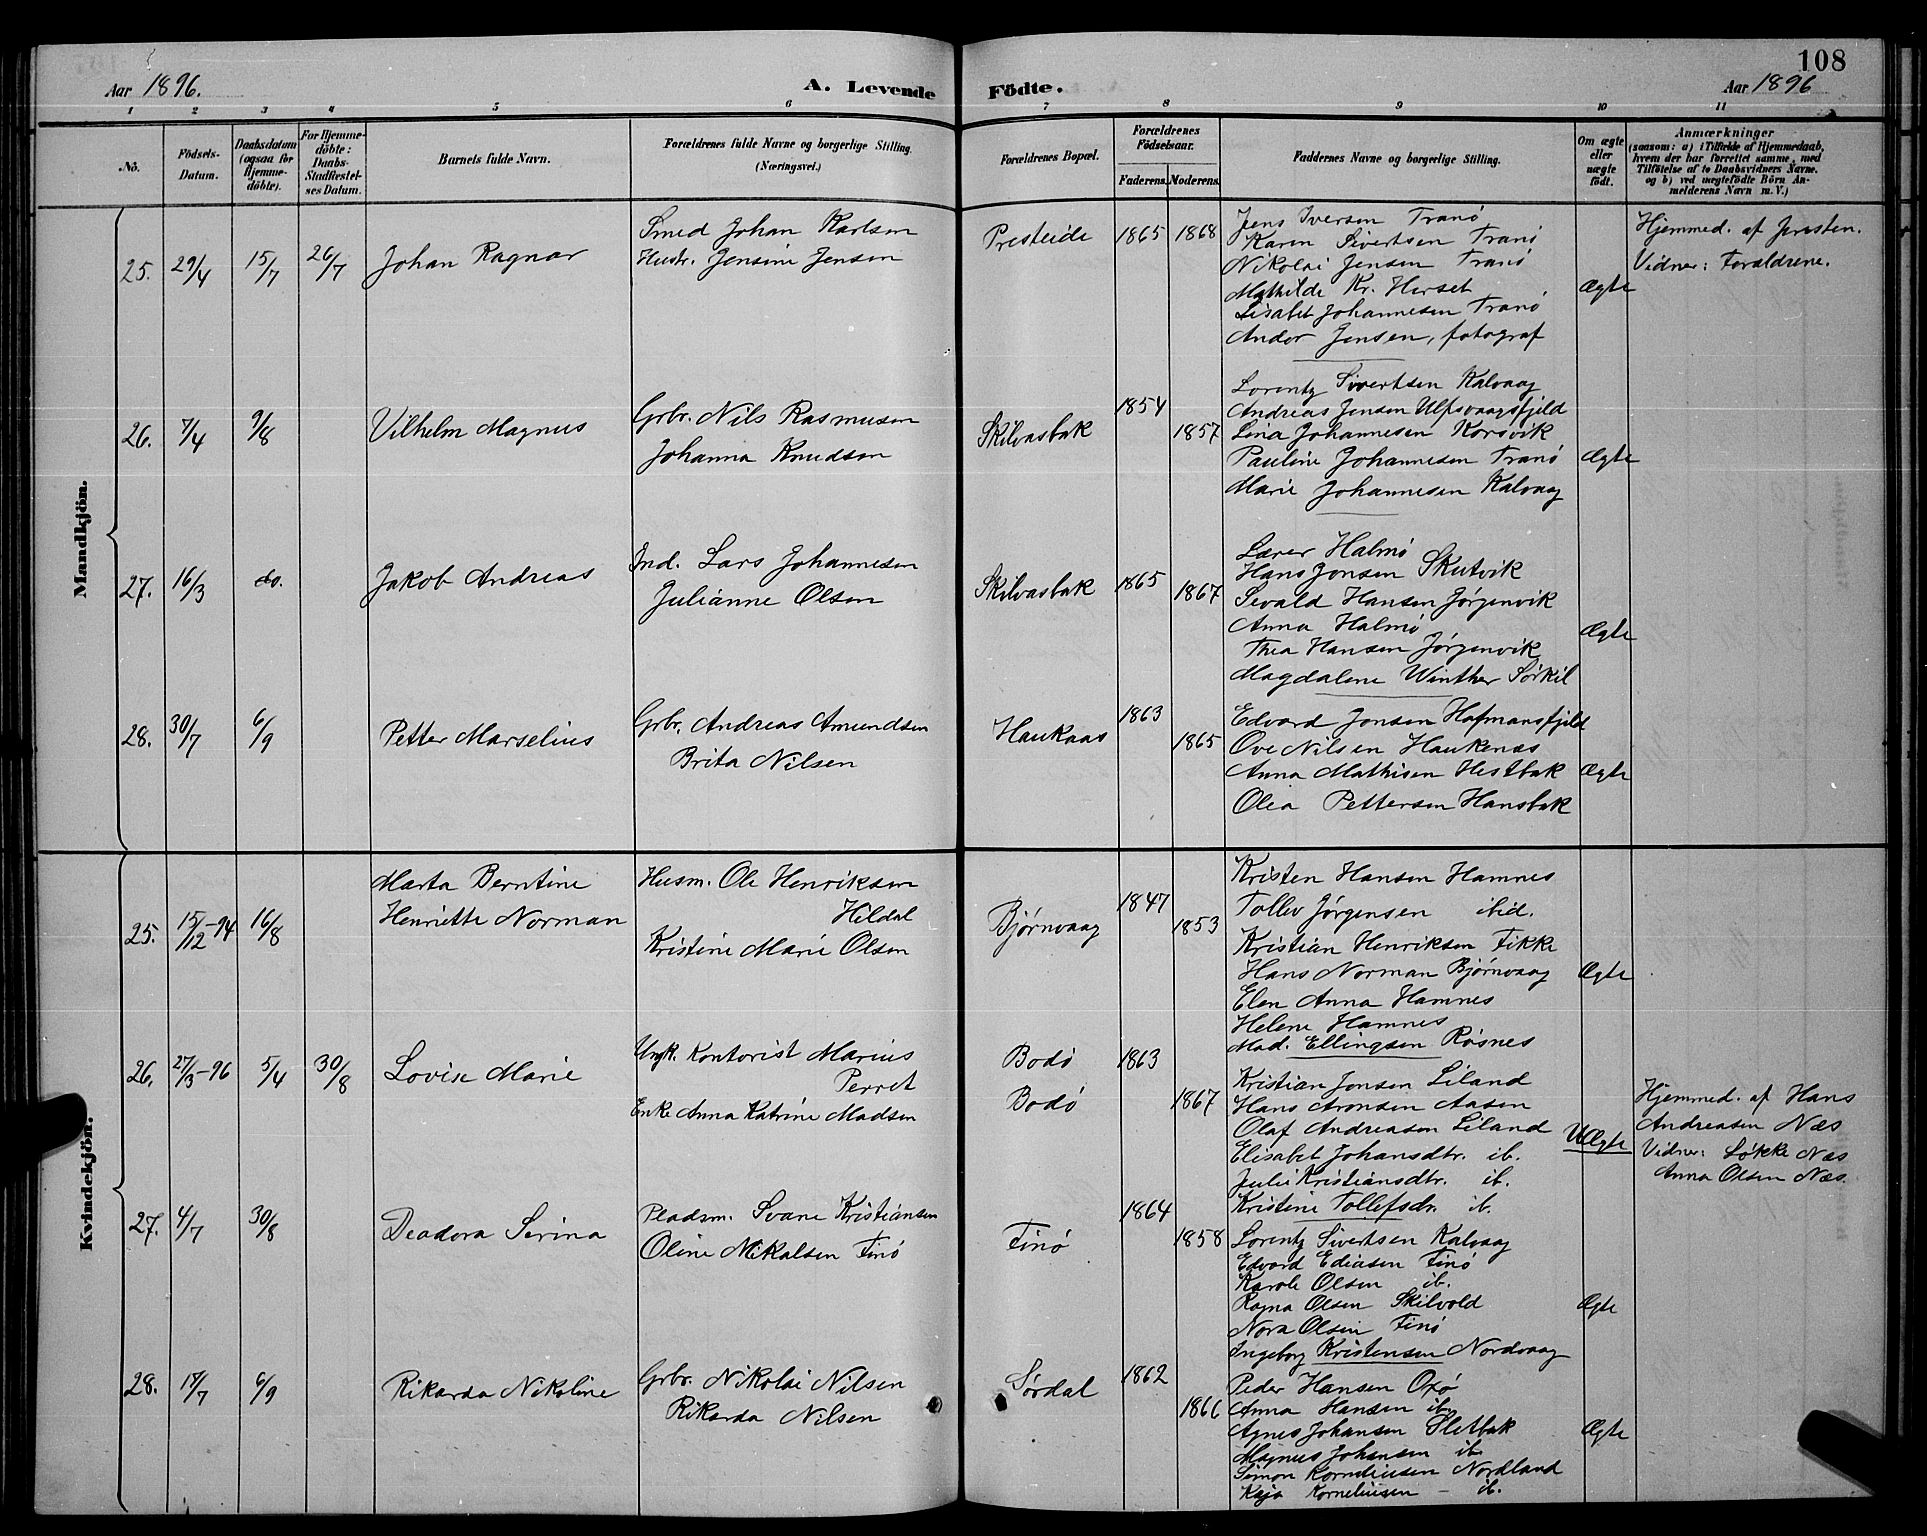 108
Aar 1896.
A. Levende Födte.
Aar 1896
1 2 3 4 5 6 7 8 9 10 11
No.
Födsels-Datum.
Daabsdatum (ogsaa for Hjemme-döbte).
For Hjemme-döbte: Daabs-Stadfestel-ses Datum.
Barnets fulde Navn.
Forældrenes fulde Navne og borgerlige Stilling.
(Næringsvei.)
Forældrenes Bopæl.
Forældrenes Födselsaar.
Faderens. Moderens.
Faddernes Navne og borgerlige Stilling.
Om ægte eller uægte födt.
Anmærkninger
(saasom: a) i Tilfælde af Hjemmedaab,
hvem der har forrettet samme, med
Tilföielse af to Daabsvidners Navne.
og b) ved uægtefödte Börn An-
melderens Navn m. V.)
Mandkjön.
25. 29/4 15/7 26/7 Johan Ragnar
Smed Johan Karlsen
Hustr. Jensine Jensen
Presteide 1865 1868
Jens Iversen Tranö
Karen Sivertsen Tranö
Nikolai Jensen Tranö
Mathilde Kr. Herset
Lisabet Johannesen Tranö
Andor Jensen, fotograf
Ægte
Hjemmed. af Presten.
Vidner: Forældrene.
26. 7/4 9/8 Vilhelm Magnus
Grbr. Nils Rasmusen
Johanna Knudsen
Skilvasbak 1854 1857
Lorentz Sivertsen Kalvaag
Andreas Jensen Ulfsvaagfjeld
Lina Johannesen Korsvik
Pauline Johannesen Tranö
Marie Johannesen Kalvaag
Ægte
27. 16/3 do. Jakob Andreas
Ind. Lars Johannesen
Julianne Olsen
Skilvasbak 1865 1867
Lærer Halmö
Hans Jonsen Skutvik
Sevald Hansen Jørgenvik
Anna Halmö
Thea Hansen Jørgenvik
Magdalene Winther Sörkil
Ægte
28. 30/7 6/9 Petter Marselius
Grbr. Andreas Amundsen
Brita Nilsen
Haukaas 1863 1865
Edvard Jonsen Hofmansfjeld
Ove Nilsen Haukenæs
Anna Mathisen Hestbak
Olea Pettersen Hansbak
Ægte
Kvindekjön.
25. 15/12-94 16/8 Marta Berntine
Henriette Norman
Husm. Ole Henriksen
Hildal
Kristine Marie Olsen
Bjørnvaag 1847 1853
Kristen Hansen Hamnes
Tollev Jørgensen ibid.
Kristian Henriksen Fikke
Hans Norman Bjørnvaag
Elen Anna Hamnes
Helene Hamnes
Mad. Ellingsen Røsnes
Ægte
26. 27/3-96 5/4 30/8 Lovise Marie
Ungk. Kontorist Marius
Perret
Enke Anna Katrine Madsen
Bodö 1863
Bodö 1867
Kristian Jonsen Liland
Hans Aronsen Aasen
Olaf Andreasen Liland
Elisabet Johansdtr. ib.
Julie Kristiansdtr. ib.
Kristine Tollefsdr. ib.
Uægte
Hjemmed. af Hans
Andreasen Næs
Vidner: Løkke Næs
Anna Olsen Næs
27. 4/7 30/8 Deadora Serina
Pladsm. Svane Kristiansen
Oline Nikalsen Finö
Finö 1864 1858
Lorentz Sivertsen Kalvaag
Edvard Ediasen Finö
Karole Olsen ib.
Ragna Olsen Skilvold
Nora Olsen Finö
Ingeborg Kristensen Nordvaag
Ægte
28. 18/7 6/9 Rikarda Nikoline
Grbr. Nikolai Nilsen
Rikarda Nilsen
Sørdal 1862 1866
Peder Hansen Oxö
Anna Hansen ib.
Agnes Johansen Sletbak
Magnus Johansen ib.
Simon Korneliusen Nordland
Kaja Korneliusen – ib.
Ægte